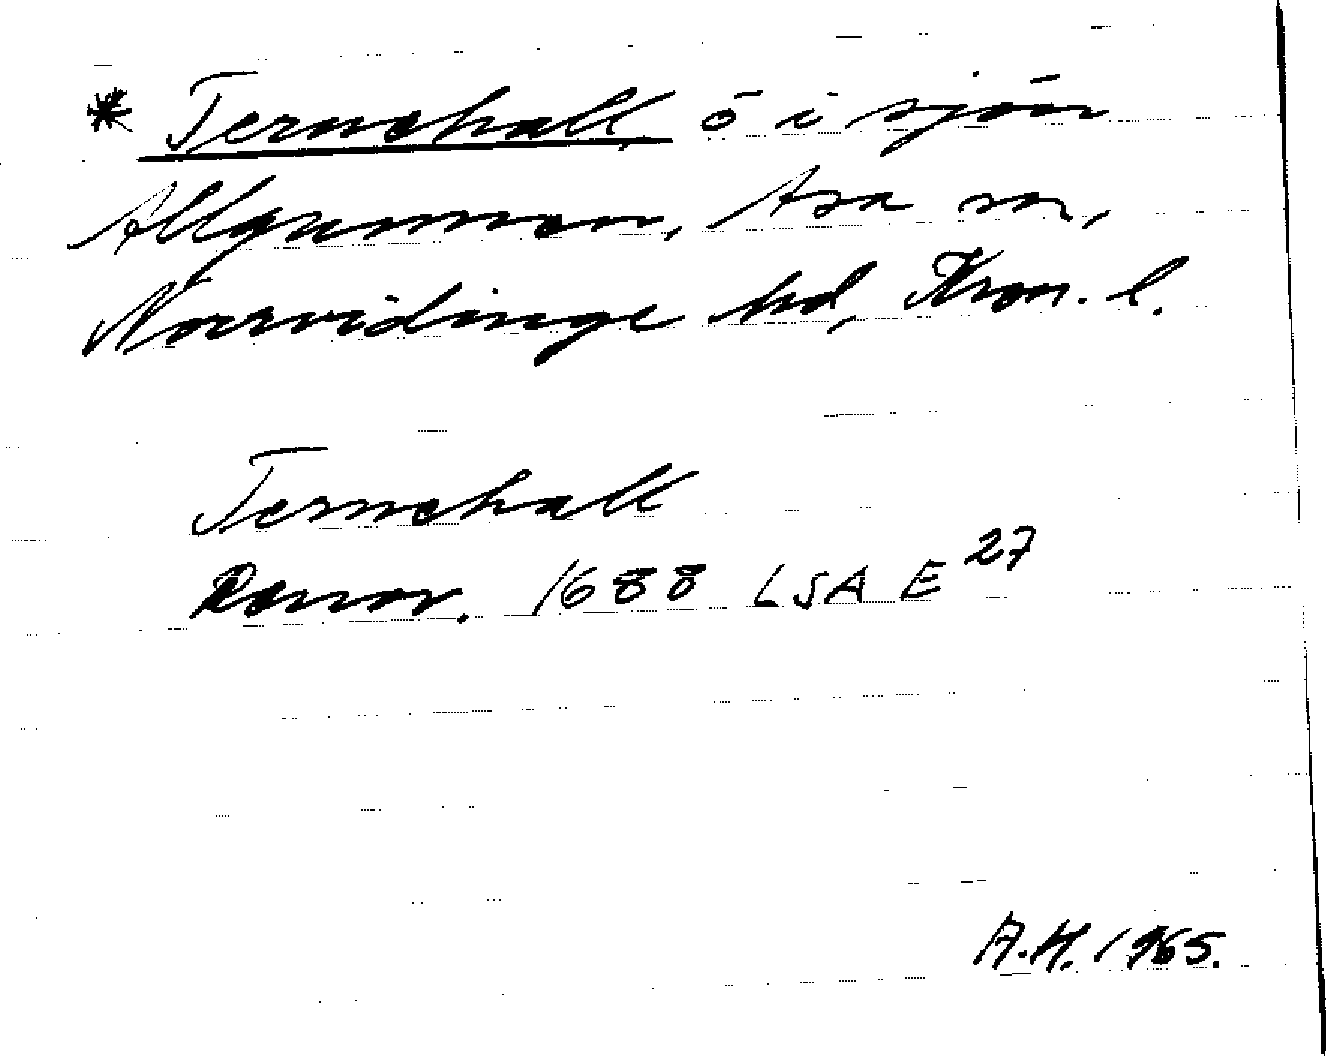 * Ternehall, ö i sjön
Allgunnen, Asa sn,
Norrvidinge hd, Kron. l.
Ternehall
Rannsr. 1688 LSA E 27
A.H. 1965.